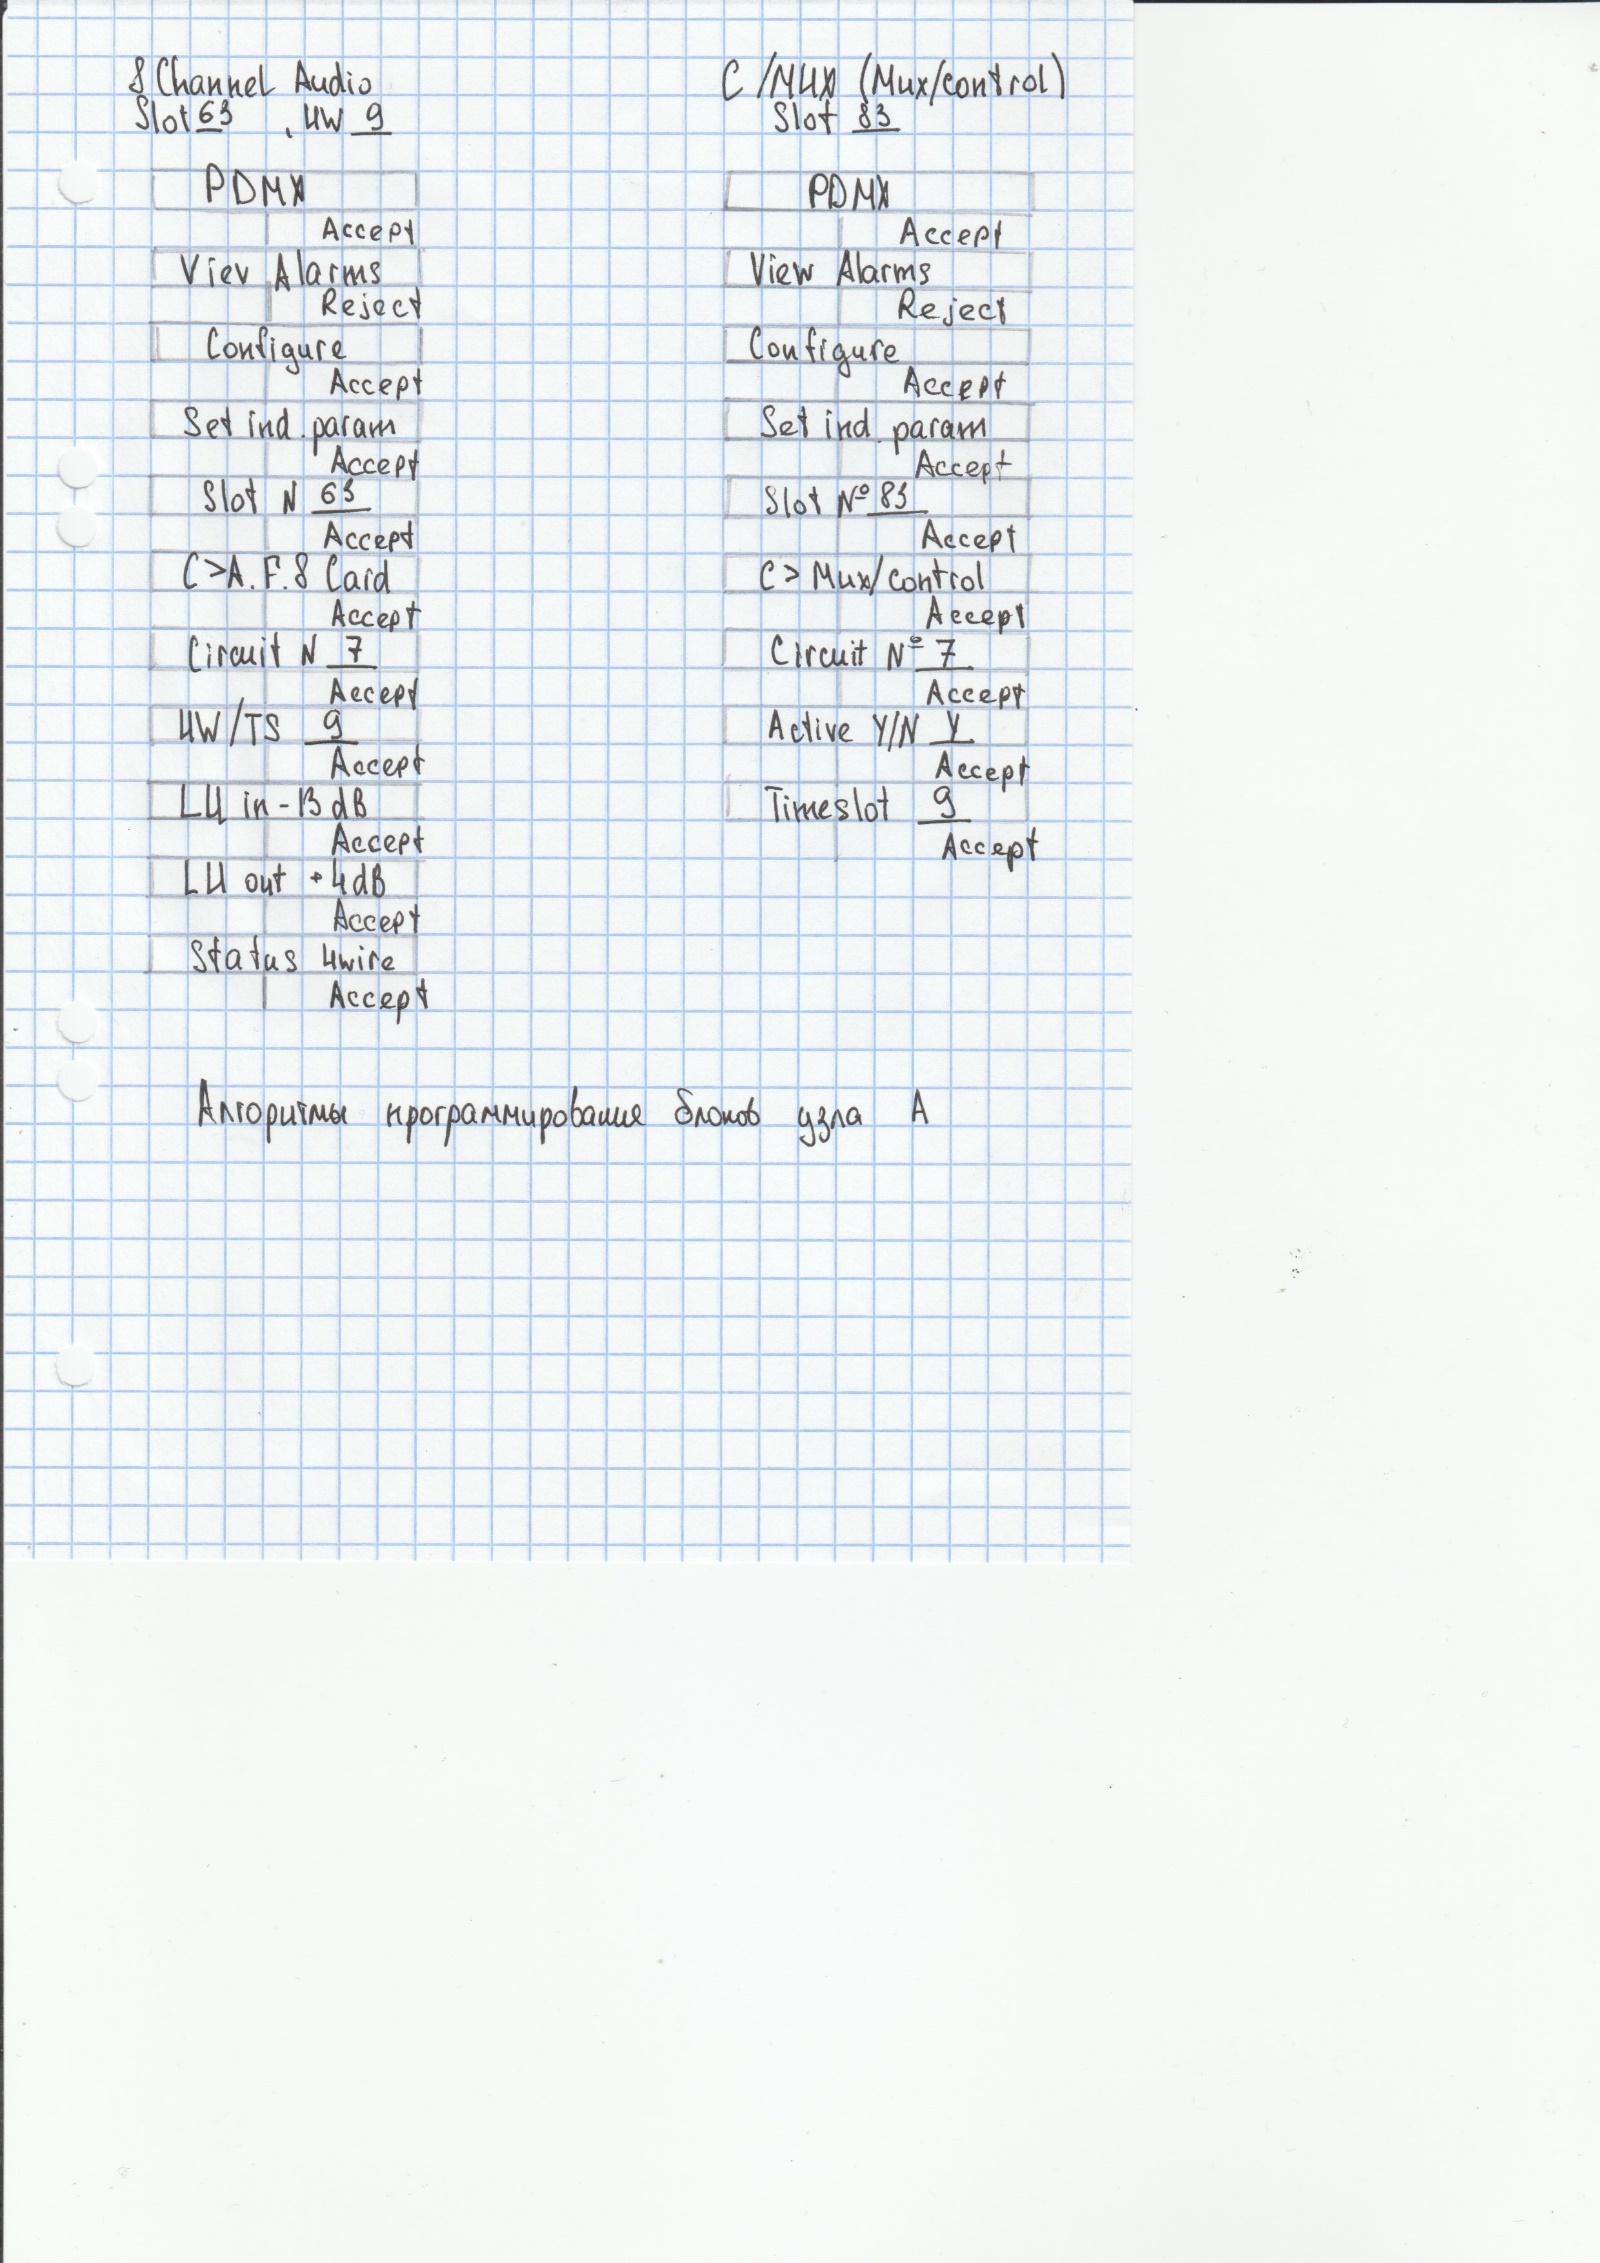 8 Channel Audio
Slot 63 , 4W 9
PDMX
Accept
Viev Alarms
Reject
Configure
Accept
Set ind. param
Accept
Slot N 63
Accept
C>A.F.8 Card
Accept
Circuit N 7
Accept
4W/TS 9
Accept
L4 in -13 dB
Accept
L4 out +4dB
Accept
Status 4wire
Accept
C/MUX (Mux/control)
Slot 83
PDMX
Accept
View Alarms
Reject
Configure
Accept
Set ind. param
Accept
Slot № 83
Accept
C> Mux/control
Accept
Circuit № 7
Accept
Active Y/N Y
Accept
Timeslot 9
Accept
Алгоритмы программирования блоков узла А